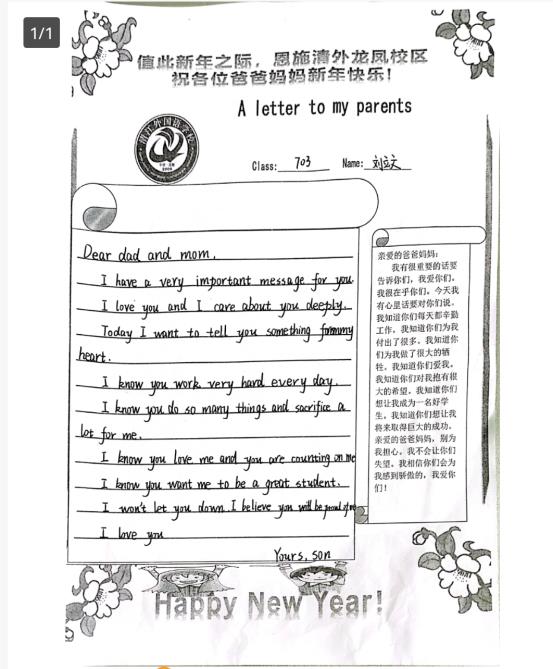 1/1
值此新年之际，恩施清外龙凤校区
祝各位爸爸妈妈新年快乐！
A letter to my parents
Class: 703 Name: 刘立文
Dear dad and mom.
I have a very important message for you.
I love you and I care about you deeply.
Today I want to tell you something from my
heart.
I know you work very hard every day.
I know you do so many things and sacrifice a
lot for me.
I know you love me and you are counting on me
I know you want me to be a great student.
I won't let you down. I believe you will be proud of me
I love you
Yours, son
亲爱的爸爸妈妈：
我有很重要的话要
告诉你们，我爱你们，
我很在乎你们。今天我
有心里话要对你们说。
我知道你们每天都辛勤
工作。我知道你们为我
付出了很多。我知道你
们为我做了很大的牺
牲。我知道你们爱我。
我知道你们对我抱有很
大的希望。我知道你们
想让我成为一名好学
生。我知道你们想让我
将来取得巨大的成功。
亲爱的爸爸妈妈，别为
我担心。我不会让你们
失望。我相信你们会为
我感到骄傲的，我爱你
们！
Happy New Year!